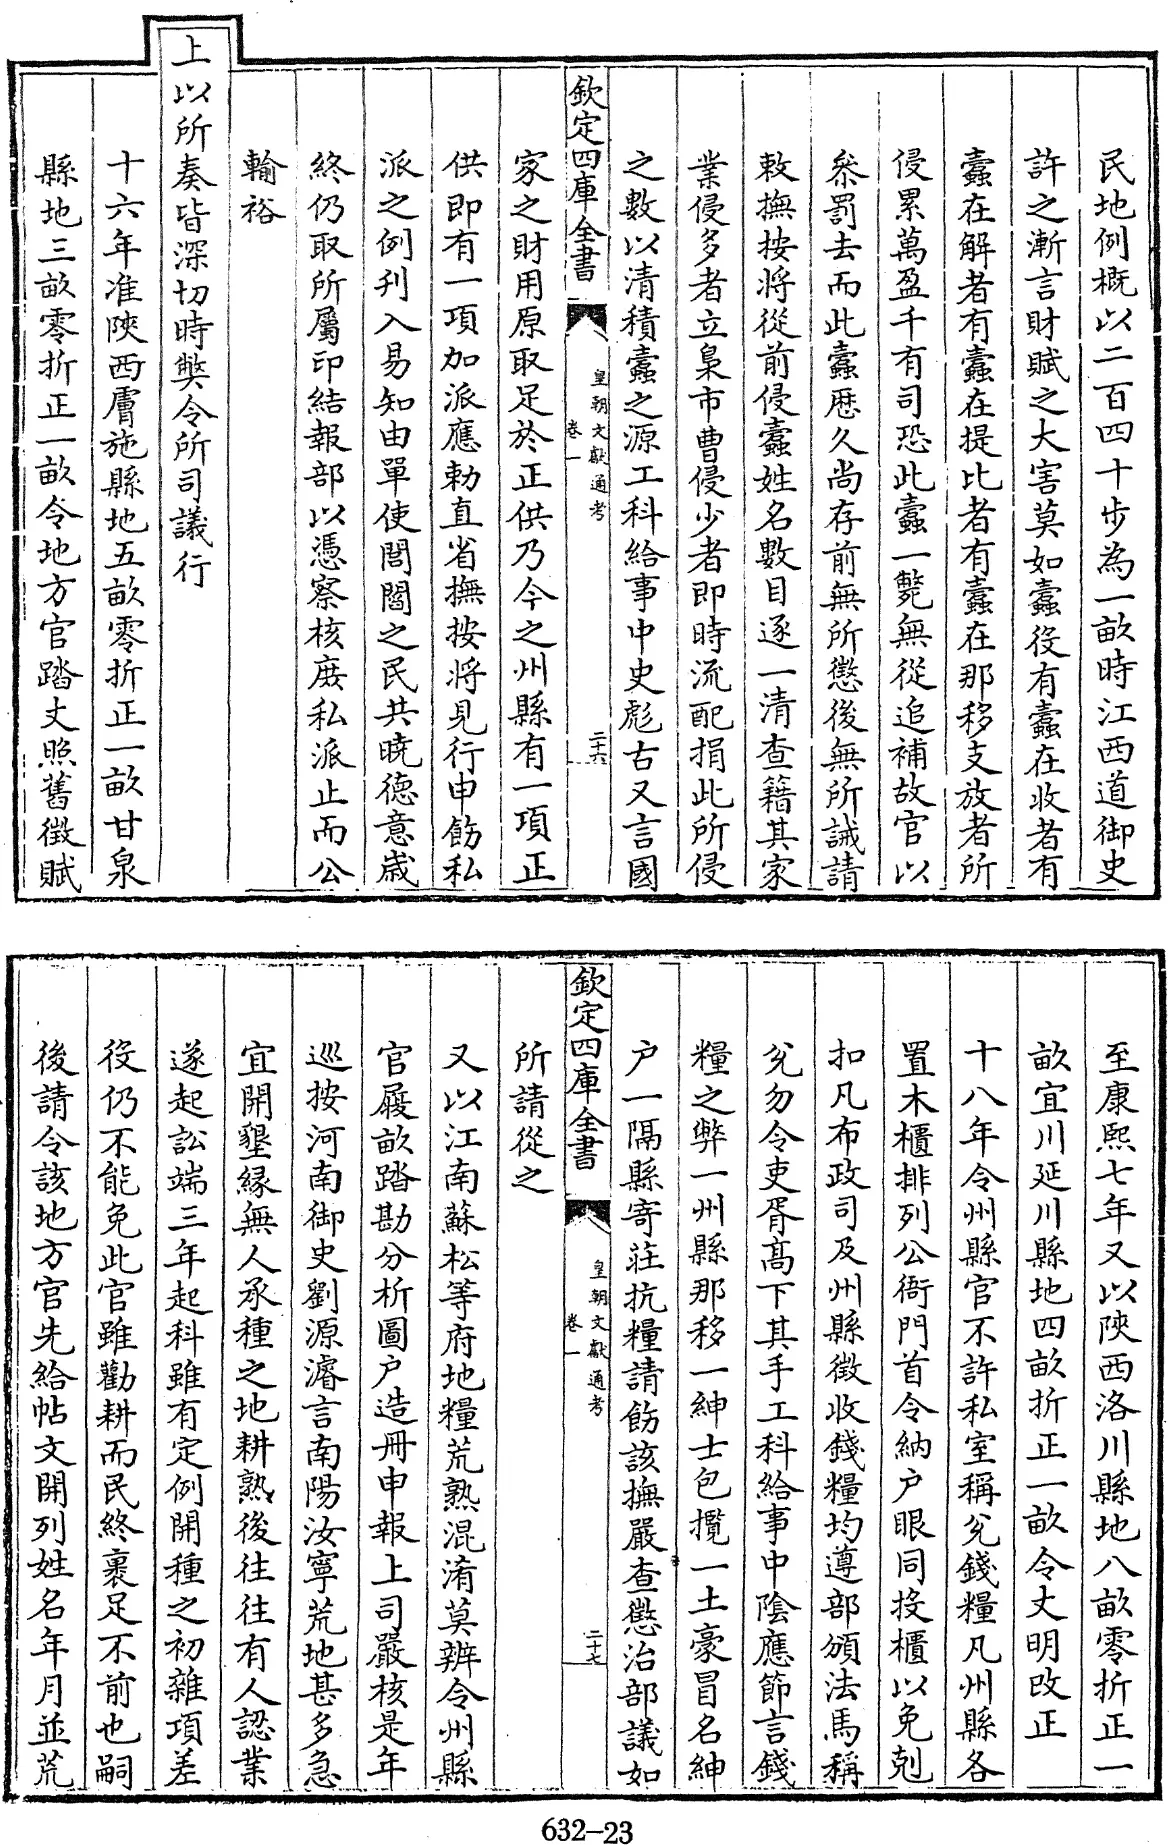 民地例概以二百四十步為一畝時江西道御史
許之漸言財賦之大害莫如蠹役有蠹在收者有
蠹在解者有蠹在提比者有蠹在那移支放者所
侵累萬盈千有司恐此蠹一斃無從追補故官以
叅罰去而此蠹厯久尚存前無所懲後無所誡請
敕撫按將從前侵蠹姓名數目逐一清查籍其家
業侵多者立梟市曹侵少者即時流配捐此所侵
之數以清積蠹之源工科給事中史彪古又言國
欽定四庫全書
皇朝文獻通考
卷一
二十六
家之財用原取足於正供乃今之州縣有一項正
供即有一項加派應勅直省撫按將見行申飭私
派之例刋入易知由單使閭閻之民共曉德意歲
終仍取所屬印結報部以憑察核庻私派止而公
輸裕
上以所奏皆深切時弊令所司議行
十六年准陜西膚施縣地五畝零折正一畝甘泉
縣地三畝零折正一畝令地方官踏丈照舊徴賦
至康熙七年又以陜西洛川縣地八畝零折正一
畝宜川延川縣地四畝折正一畝令丈明改正
十八年令州縣官不許私室稱兊錢糧凡州縣各
置木櫃排列公衙門首令納户眼同投櫃以免剋
扣凡布政司及州縣徵收錢糧均遵部頒法馬稱
兊勿令吏胥髙下其手工科給事中隂應節言錢
糧之弊一州縣那移一紳士包攬一土豪冒名紳
户一隔縣寄莊抗糧請飭該撫嚴查懲治部議如
欽定四庫全書
皇朝文獻通考
卷一
二十七
所請從之
又以江南蘇松等府地糧荒熟混淆莫辨令州縣
官履畝踏勘分析圖户造冊申報上司嚴核是年
巡按河南御史劉源濬言南陽汝寧荒地甚多急
宜開墾縁無人承種之地耕熟後往往有人認業
遂起訟端三年起科雖有定例開種之初雜項差
役仍不能免此官雖勸耕而民終裹足不前也嗣
後請令該地方官先給帖文開列姓名年月並荒
632-23